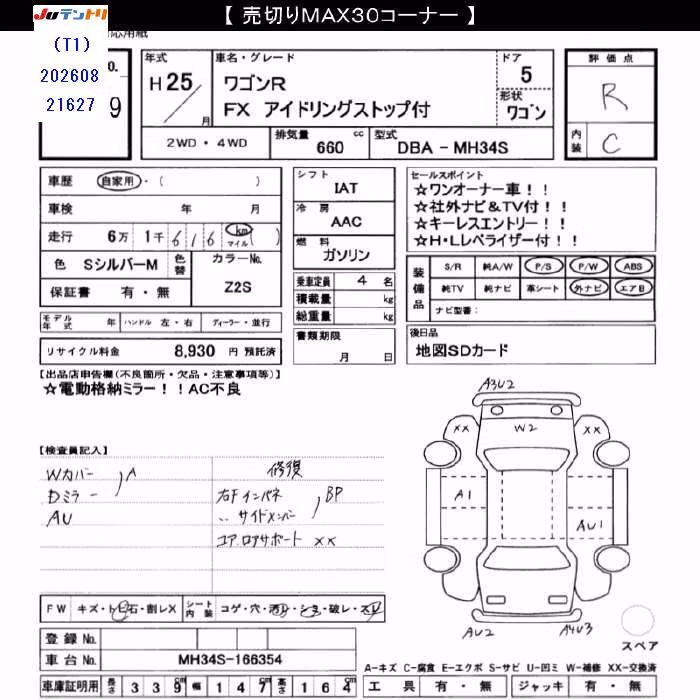 【 売切りMAX30コーナー 】
JUテントリ
応用紙
(T1)
202608
21627
o.
9
年式
H 25
月
車名・グレード
ワゴンR
FX アイドリングストップ付
ドア
5
形状
ワゴン
評価点
R
内装
C
2WD・4WD
排気量
660 cc
型式
DBA - MH34S
車歴 自家用・( )
車検 年 月
走行 6万 1千 6 1 6 km マイル ( )
色 SシルバーM 色替
カラーNo.
Z2S
保証書 有・無
シフト
IAT
冷房
AAC
燃料
ガソリン
乗車定員 4 名
積載量 kg
総重量 kg
セールスポイント
☆ワンオーナー車！！
☆社外ナビ&TV付！！
☆キーレスエントリー！！
☆H・Lレベライザー付！！
装備品
S/R 純A/W P/S P/W ABS
純TV 純ナビ 革シート 外ナビ エアB
ナビ型番：
モデル年式 年 ハンドル 左・右 ディーラー・並行
書類期限
月 日
後日品
地図SDカード
リサイクル料金 8,930 円 預託済
【出品店申告欄(不良箇所・欠品・注意事項等)】
☆電動格納ミラー！！AC不良
【検査員記入】
Wカバー
Dミラー
A
AU
修復
右Fインパネ
〃 サイドメンバー
BP
コアロアサポート XX
A3U2
XX
W2
XX
A1
AU1
AU2
A4U3
スペア
FW キズ・トビ石・割レX
シート内装 コゲ・穴・汚レ・シミ・破レ・スレ
登録No.
車台No. MH34S-166354
車庫証明用 長さ 3 3 9 cm 幅 1 4 7 cm 高さ 1 6 4 cm
A-キズ C-腐食 E-エクボ S-サビ U-凹ミ W-補修 XX-交換済
工具 有・無 ジャッキ 有・無